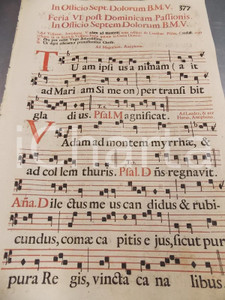 In Officio Sept. Dolorum B.M.V. 577
Feria VI post Dominicam Passionis.
In Officio Septem Dolorum B.M.V.
Ad Magnificat, Antiphona.
Tuam ipsius animam (ait
ad Mariam Simeon) pertransibit
gladius. Psal. Magnificat.
Ad Laudes, & per
Horas, Antiphona.
Vadam ad montem myrrhæ, &
ad collem thuris. Psal. Dñs regnavit.
Aña. Dilectus meus candidus & rubi-
cundus, comæ capitis ejus, sicut pur-
pura Regis, vincta canalibus